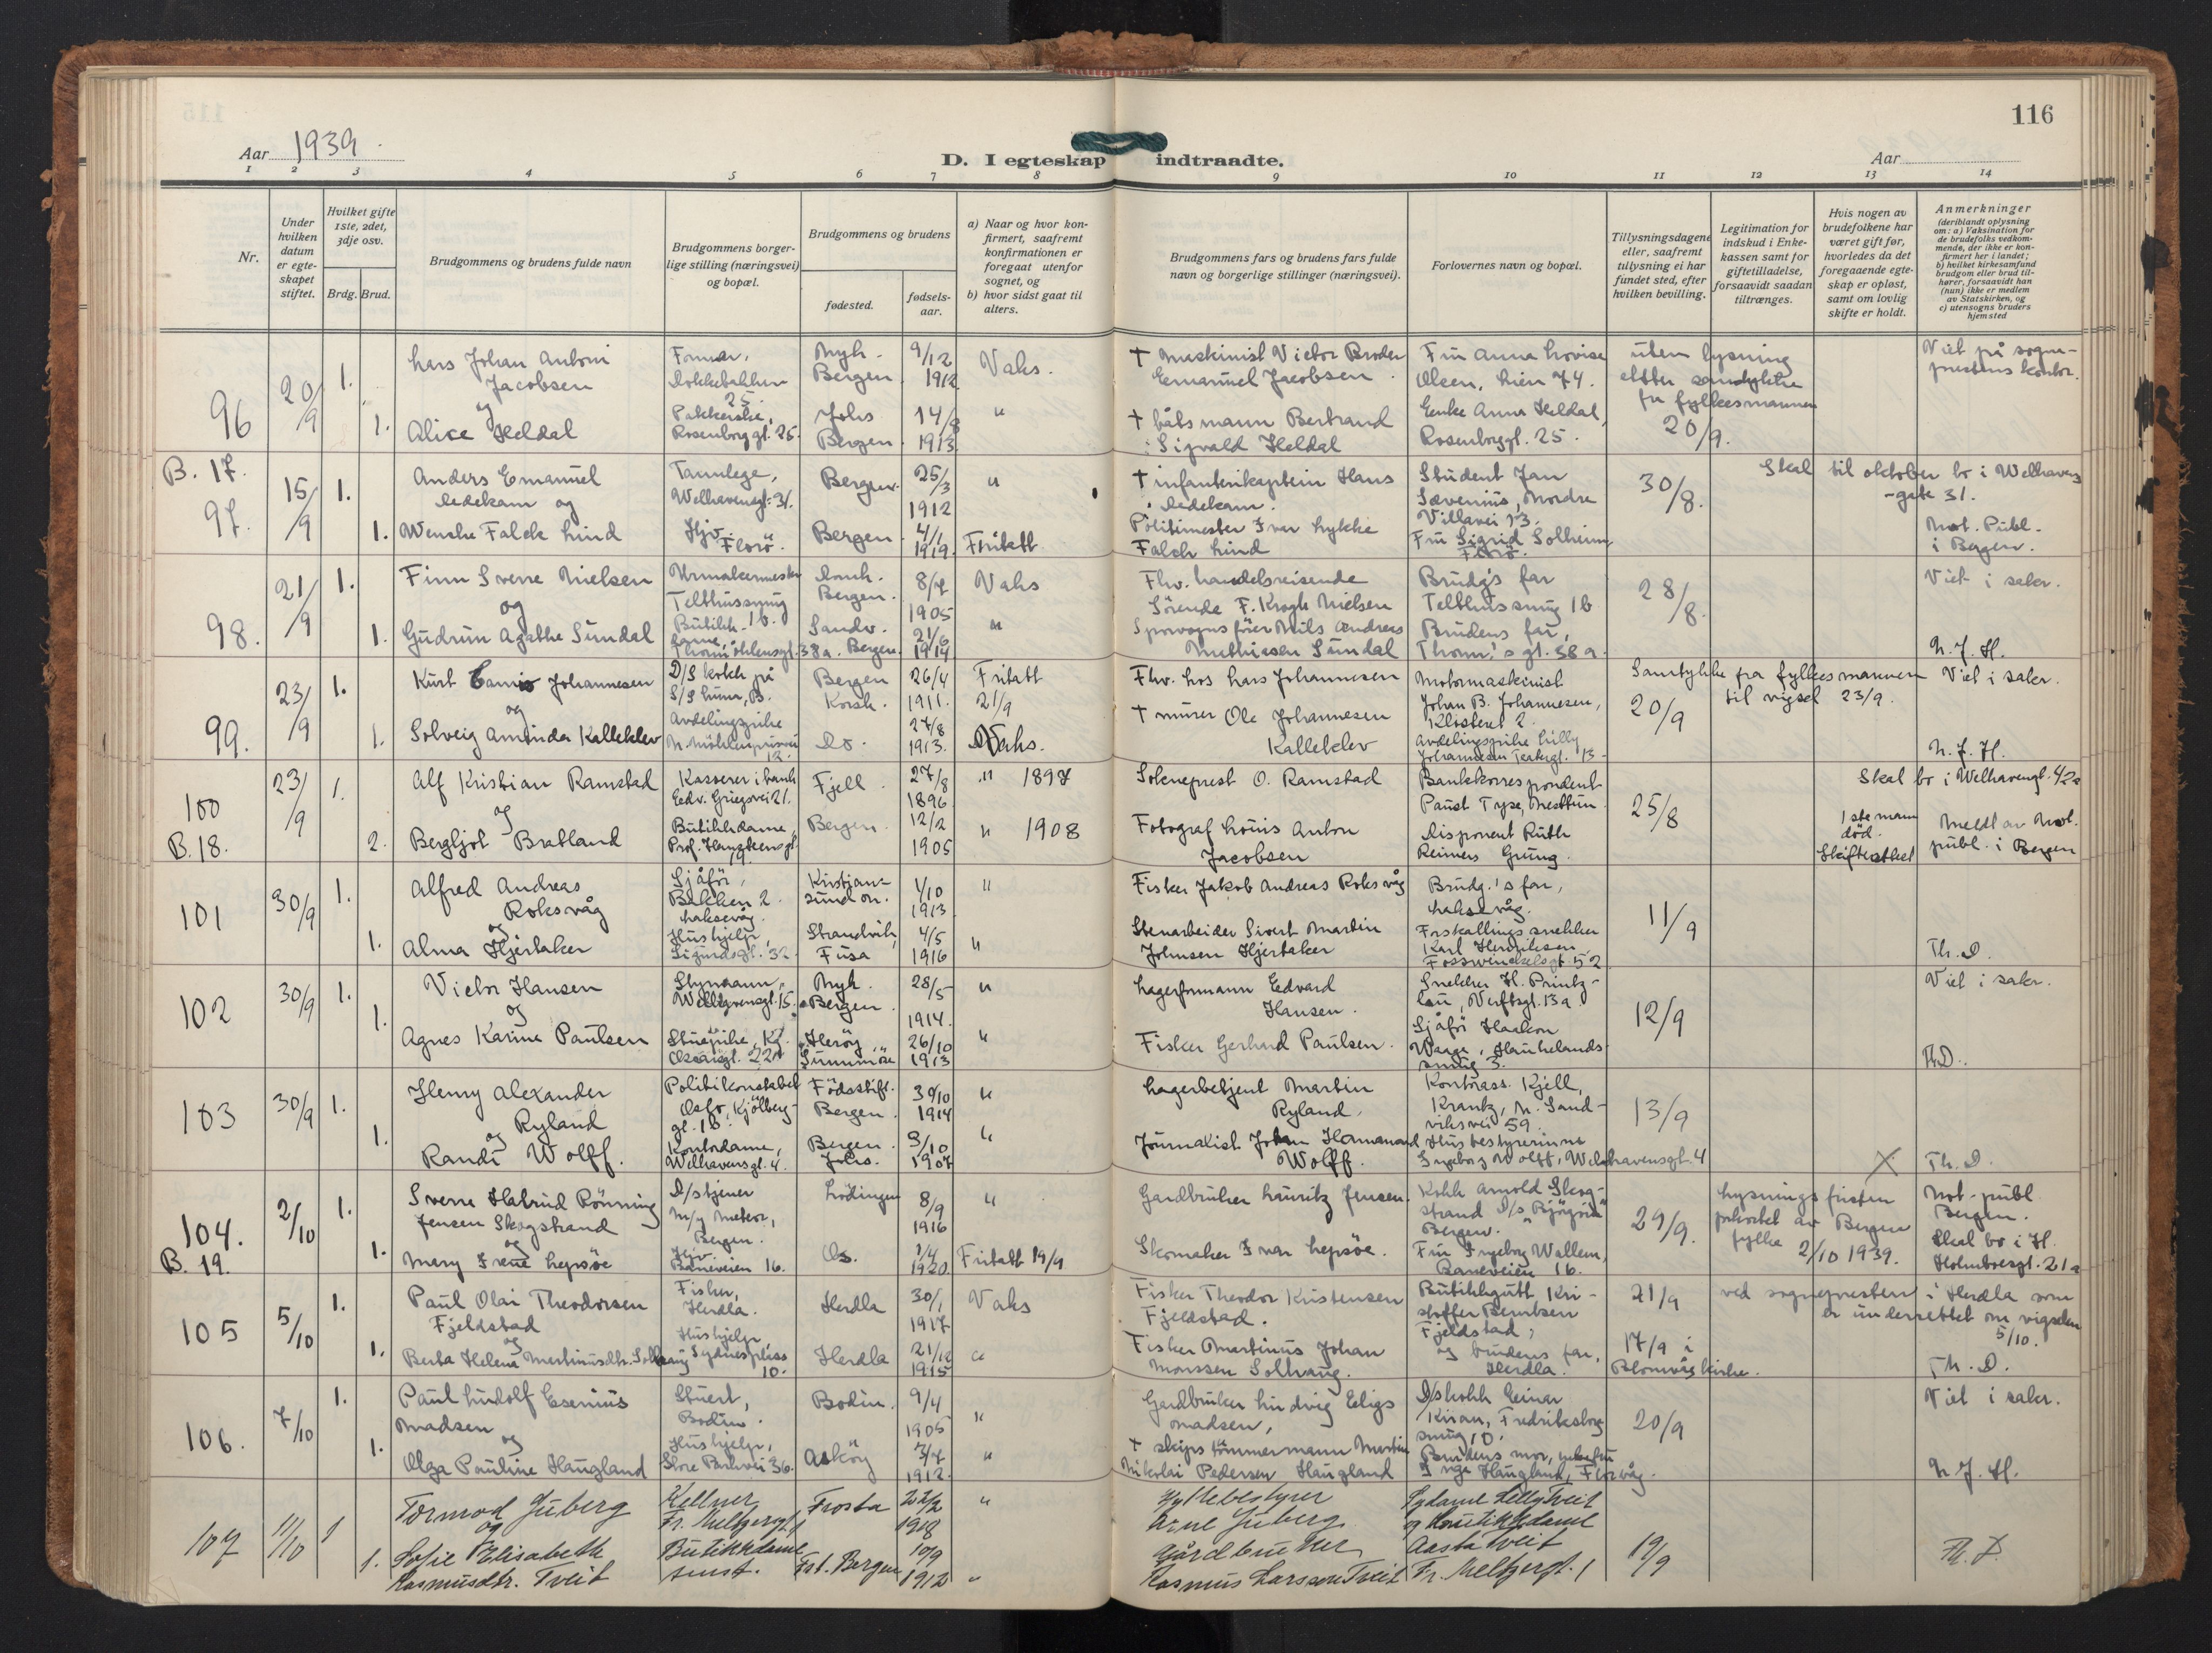 116
Aar 1939.
D. I egteskap indtraadte.
Aar
1 2 3 4 5 6 7 8 9 10 11 12 13 14
Nr.
Under hvilken datum er egteskapet stiftet.
Hvilket gifte 1ste, 2det, 3dje osv.
Brdg. Brud.
Brudgommens og brudens fulde navn
Brudgommens borgerlige stilling (næringsvei) og bopæl.
Brudgommens og brudens
fødested.
fødselsaar.
a) Naar og hvor konfirmert, saafremt konfirmationen er foregaat utenfor sognet, og
b) hvor sidst gaat til alters.
Brudgommens fars og brudens fars fulde navn og borgerlige stillinger (næringsvei).
Forlovernes navn og bopæl.
Tillysningsdagene eller, saafremt tillysning ei har fundet sted, efter hvilken bevilling.
Legitimation for indskud i Enkekassen samt for giftetilladelse, forsaavidt saadan tiltrænges.
Hvis nogen av brudefolkene har været gift før, hvorledes da det foregaaende egteskap er opløst, samt om lovlig skifte er holdt.
Anmerkninger
(deriblandt oplysning om: a) Vaksination for de brudefolks vedkommende, der ikke er konfirmert her i landet; b) hvilket kirkesamfund brudgom eller brud tilhører, forsaavidt han (hun) ikke er medlem av Statskirken, og c) utensogns bruders hjemsted
96 20/9 1. Lars Johan Antoni Jacobsen
og
1. Alice Heldal
Formar, Dokkebakken 25.
Pakkerske, Rosenborggt. 25.
Nyk. Bergen 9/12 1912 Vaks.
Johs Bergen 14/8 1913 "
† Maskinist Victor Broder Emanuel Jacobsen.
† båtsmann Bertrand Sigvald Heldal
Fru Anna Lovise Olsen, Lien 74.
Enke Anna Heldal, Rosenborggt. 25.
uten lysning etter samtykke fra fylkesmannen 20/9.
Viet på sogneprestens kontor.
B. 17.
97. 15/9 1. Anders Emanuel Dedekam og
1. Wenche Falck Lind
Tannlege, Welhavensgt. 31.
Hjv. Florö.
Bergen. 25/3 1912 "
Bergen 4/1 1919. Fritatt
† infanterikaptein Hans Dedekam.
Politimester Iver Lykke Falch Lind
Student Jan Sævenius, Nordre Villavei 13.
Fru Sigrid Solheim Florö.
30/8.
Skal til oktober bo i Welhavensgate 31.
Not. Publ. i Bergen.
98. 21/9 1. Finn Sverre Nielsen
og
1. Gudrun Agathe Sundal
Urmakermester Telthussmug 1b.
Butikkdame, Thormöhlensgt. 38a.
Domk. Bergen. 8/7 1905 Vaks
Sandv. Bergen. 21/6 1914 "
Fhv. handelsreisende Sörende F. Krogh Nielsen
Sporvognsförer Nils Andreas Mathiesen Sundal
Brudg's far Telthussmug 1b
Brudens far, Thorm.'s gt. 38a.
28/8.
Viet i sakr.
N. J. H.
99. 23/9 1. Kurt Camio Johannesen
og
1. Solveig Aminda Kalleklev
D/S kokk på S/S Lunn, B.
Avdelingspike N. Möhlenprisvei 12.
Bergen Korsk. 26/4 1911. Fritatt 21/9
Do. 27/8 1913. Vaks.
Fhv. los Lars Johannesen
† murer Ole Johannesen Kalleklev
Motormaskinist Johan B. Johannesen, Klosteret 2.
Avdelingspike Lilly Johannesen
20/9
Samtykke fra fylkesmannen til vigsel 23/9.
Viet i sakr.
N. J. H.
100 23/9 1. Alf Kristian Ramstad
og
B. 18. 2. Bergljot Bratland
Kasserer i bank Edv. Griegsvei 21.
Butikkdame, Prof. Hansteensgt 19.
Fjell. 27/8 1896 " 1897
Bergen. 12/2 1905 " 1908
Sokneprest O. Ramstad
Fotograf Louis Anton Jacobsen
Bankkorrespondent Paust Type, Nesttun.
Disponent Ruth Reimers Grung.
25/8
Skal bo i Welhavengt. 42a
1ste mann död. Skifteattest
Meldt av Not. publ. i Bergen
101 30/9 1. Alfred Andreas Roksvåg
og
1. Alma Hjertaker
Sjåför, Bakken 2 Laksevåg.
Hushjelp, Sigurdsgt. 32.
Kristiansund N. 1/10 1913 "
Strandvik, Fusa 4/5 1916 "
Fisker Jakob Andreas Roksvåg
Stenarbeider Sivert Martin Johnsen Hjertaker
Brudg.'s far, Laksevåg.
Forskallingssnekker Karl Henriksen, Fosswinckelsgt. 52
11/9
Th. D.
102 30/9 1. Victor Hansen
og
1. Agnes Karine Paulsen
Styrmann, Welhavensgt. 15.
Stuepike, Kg. Oscarsgt. 22
Nyk. Bergen. 28/5 1914. "
Heröy, Sunnmöre 26/10 1913 "
Lagerformann Edvard Hansen.
Fisker Gerhard Paulsen.
Snekker H. Printzlau, Verftsgt. 13a
Sjåför Haakon Waage, Haukelandssmug 3.
12/9
Viet i sakr.
Th D.
103 30/9 1. Henry Alexander Ryland
og
1. Randi Wolff.
Politikonstabel Oslo, Kjölberggt. 16.
Kontordame, Welhavensgt. 4.
Födsstift. Bergen. 30/10 1914 "
Bergen. Johs. 3/10 1907 "
Lagerbetjent Martin Ryland.
Journalist Johan Hermanand Wolff.
Kontorass. Kjell Krantz, N. Sandviksvei 59.
Husbestyrerinne Ingeborg Wolff, Welhavensgt. 4
13/9
X
Th. D.
104. 2/10 1. Sverre Halrud Rönning Jensen Skogstrand
og
B. 19. 1. Mery Irene Lepsöe
D/s tjener M/y Meteor, Bergen.
Hjv. Baneveien 16.
Lödingen 8/9 1916 "
Os. 1/4 1920. Fritatt 19/9
Gardbruker Lauritz Jensen.
Skomaker Ivar Lepsöe.
Kokk Arnold Skogstrand D/s "Björgvin" Bergen.
Fru Ingeborg Wallem, Baneveien 16.
29/9.
Lysningsfristen forkortet av Bergen fylke 2/10 1939.
Not. publ. Bergen.
Skal bo i H. Holmboesgt. 21a
105 5/10 1. Paul Olai Theodorsen Fjeldstad
og
1. Berta Helena Martinusdtr. Solhaug
Fisker, Herdla.
Hushjelp, Sydnesplass 10.
Herdla 30/1 1917 Vaks
Herdla 21/12 1915 "
Fisker Theodor Kristensen Fjeldstad.
Fisker Martinus Johan Monssen Solhaug.
Butikkgutt Kristoffer Berntsen Fjeldstad,
og brudens far, Herdla.
21/9
17/9 i Blomvåg kirke.
ved sognepresten i Herdla som er underrettet om vigselen 5/10.
Th. D.
106. 7/10 1. Paul Ludolf Esenius Madsen
og
1. Olga Pauline Haugland
Stuert, Bodin.
Hushjelp, Store Parkvei 36.
Bodin. 9/4 1905 "
Asköy 3/7 1912. "
Gardbruker Ludvig Eligs Madsen,
† skipstömmermann Martin Nikolai Pedersen Haugland
D/skokk Einar Kiran, Fredriksborgsmug 10.
Brudens mor, Inga Haugland, Florvåg.
20/9
Viet i sakr.
N. J. H.
107 11/10 1 Tormod Juberg
og
1. Sofie Elisabeth Rasmusdtr. Tveit
Kellner Fr. Meltzersgt. 1
Butikkdame smst.
Frosta 22/2 1918 "
Føt. Bergen 10/9 1912 "
Hyttebestyrer Arne Juberg
Gårdbruker Rasmus Larssen Tveit
Sydame Lilly Tveit og butikkdame Aasta Tveit Fr. Meltzersgt. 1
19/9
Th. D.